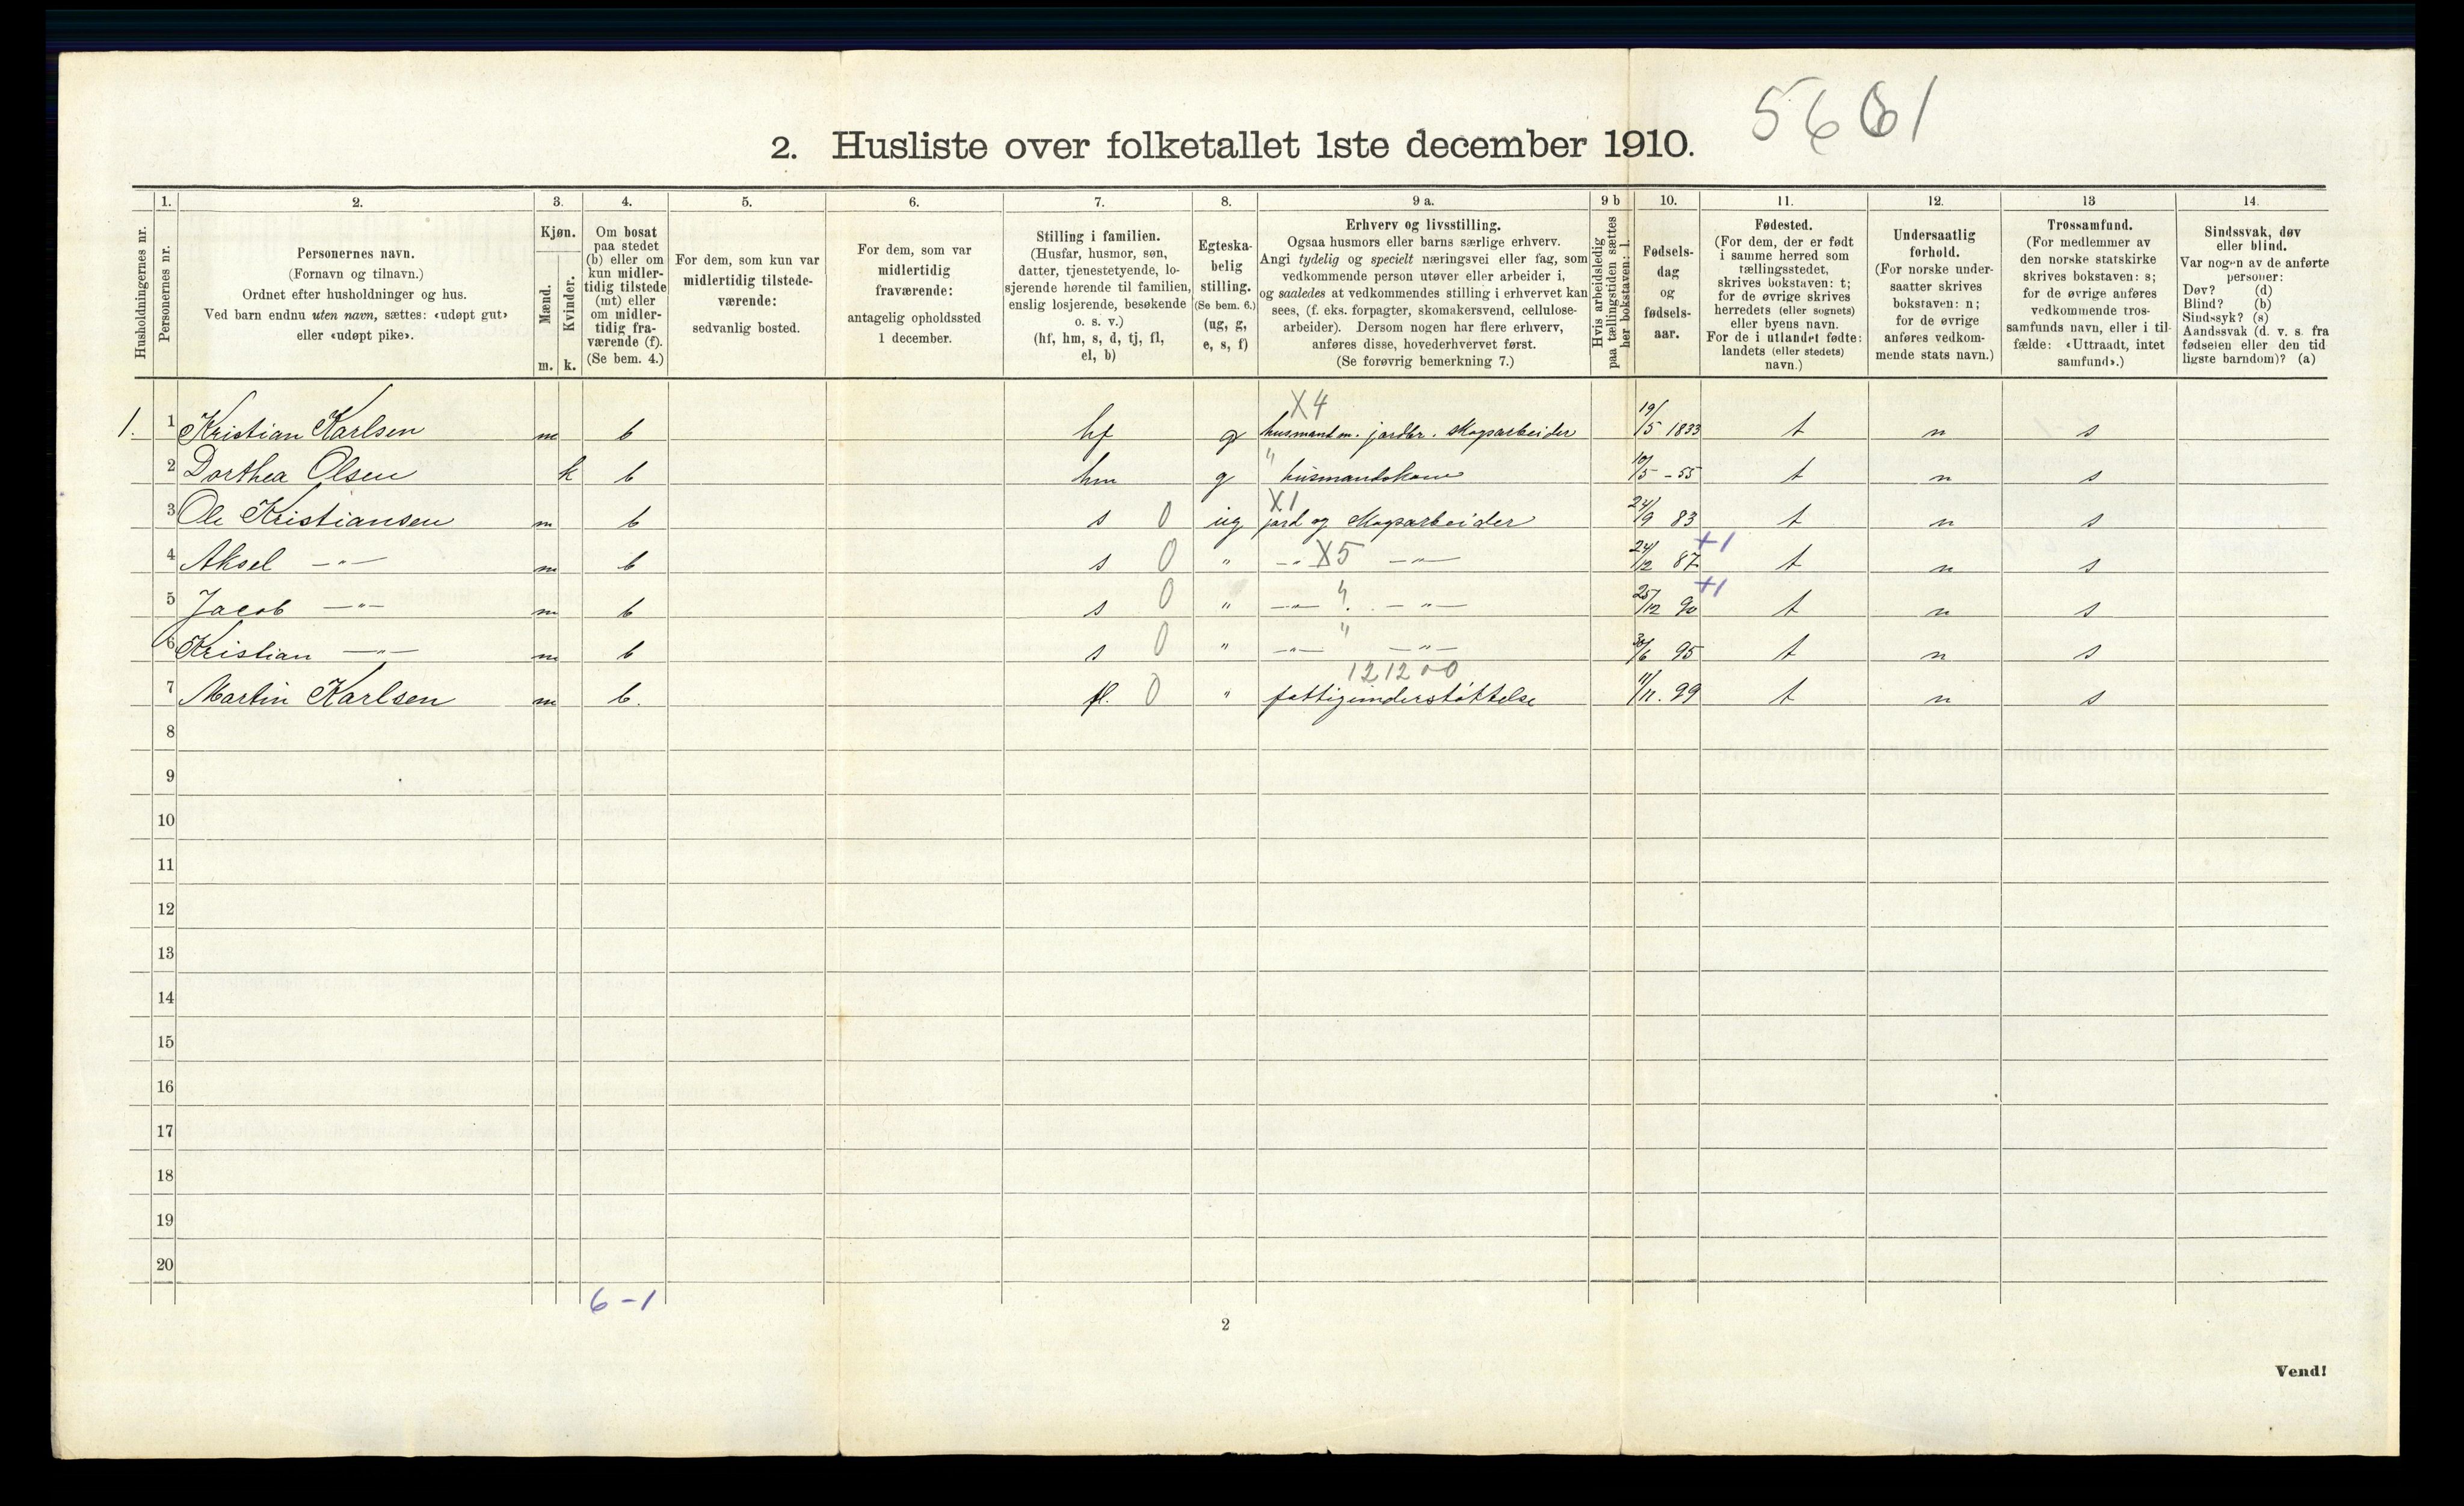 5661
2. Husliste over folketallet 1ste december 1910.
Husholdningernes nr.
1. Personernes nr.
2. Personernes navn.
(Fornavn og tilnavn.)
Ordnet efter husholdninger og hus.
Ved barn endnu uten navn, sættes: «udøpt gut»
eller «udøpt pike».
3. Kjøn.
Mænd. m.
Kvinder. k.
4. Om bosat
paa stedet
(b) eller om
kun midler-
tidig tilstede
(mt) eller
om midler-
tidig fra-
værende (f).
(Se bem. 4.)
5. For dem, som kun var
midlertidig tilstede-
værende:
sedvanlig bosted.
6. For dem, som var
midlertidig
fraværende:
antagelig opholdssted
1 december.
7. Stilling i familien.
(Husfar, husmor, søn,
datter, tjenestetyende, lo-
sjerende hørende til familien,
enslig losjerende, besøkende
o. s. v.)
(hf, hm, s, d, tj, fl,
el, b)
8. Egteska-
belig
stilling.
(Se bem. 6.)
(ug, g,
e, s, f)
9 a. Erhverv og livsstilling.
Ogsaa husmors eller barns særlige erhverv.
Angi tydelig og specielt næringsvei eller fag, som
vedkommende person utøver eller arbeider i,
og saaledes at vedkommendes stilling i erhvervet kan
sees, (f. eks. forpagter, skomakersvend, cellulose-
arbeider). Dersom nogen har flere erhverv,
anføres disse, hovederhvervet først.
(Se forøvrig bemerkning 7.)
9 b Hvis arbeidsledig
paa tællingstiden sættes
her bokstaven: l.
10. Fødsels-
dag
og
fødsels-
aar.
11. Fødested.
(For dem, der er født
i samme herred som
tællingsstedet,
skrives bokstaven: t;
for de øvrige skrives
herredets (eller sognets)
eller byens navn.
For de i utlandet fødte:
landets (eller stedets)
navn.)
12. Undersaatlig
forhold.
(For norske under-
saatter skrives
bokstaven: n;
for de øvrige
anføres vedkom-
mende stats navn.)
13 Trossamfund.
(For medlemmer av
den norske statskirke
skrives bokstaven: s;
for de øvrige anføres
vedkommende tros-
samfunds navn, eller i til-
fælde: «Uttraadt, intet
samfund».)
14. Sindssvak, døv
eller blind.
Var nogen av de anførte
personer:
Døv? (d)
Blind? (b)
Sindssyk? (s)
Aandssvak (d. v. s. fra
fødselen eller den tid
ligste barndom)? (a)
X4
1. 1 Kristian Karlsen m b hf g husmand m. jordbr. skogsarbeider 19/5 1833 t n s
2 Dorthea Olsen k b hm g " husmandskone 10/5 - 55 t n s
X1
3 Ole Kristiansen m b s 0 ug jord og skogsarbeider 24/9 83 t n s
4 Aksel —"— m b s 0 " —"— X5 —"— 24/12 87 +1 t n s
5 Jacob —"— m b s 0 " —"— " —"— 25/12 90 +1 t n s
6 Kristian —"— m b s 0 " —"— " —"— 30/6 95 t n s
121200
7 Martin Karlsen m b. fl. 0 " fattigunderstøttelse 11/11. 99 t n s
8
9
10
11
12
13
14
15
16
17
18
19
20
6-1
2
Vend!